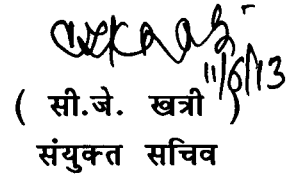 11/6/13
( सी.जे. खत्री )
संयुक्त सचिव